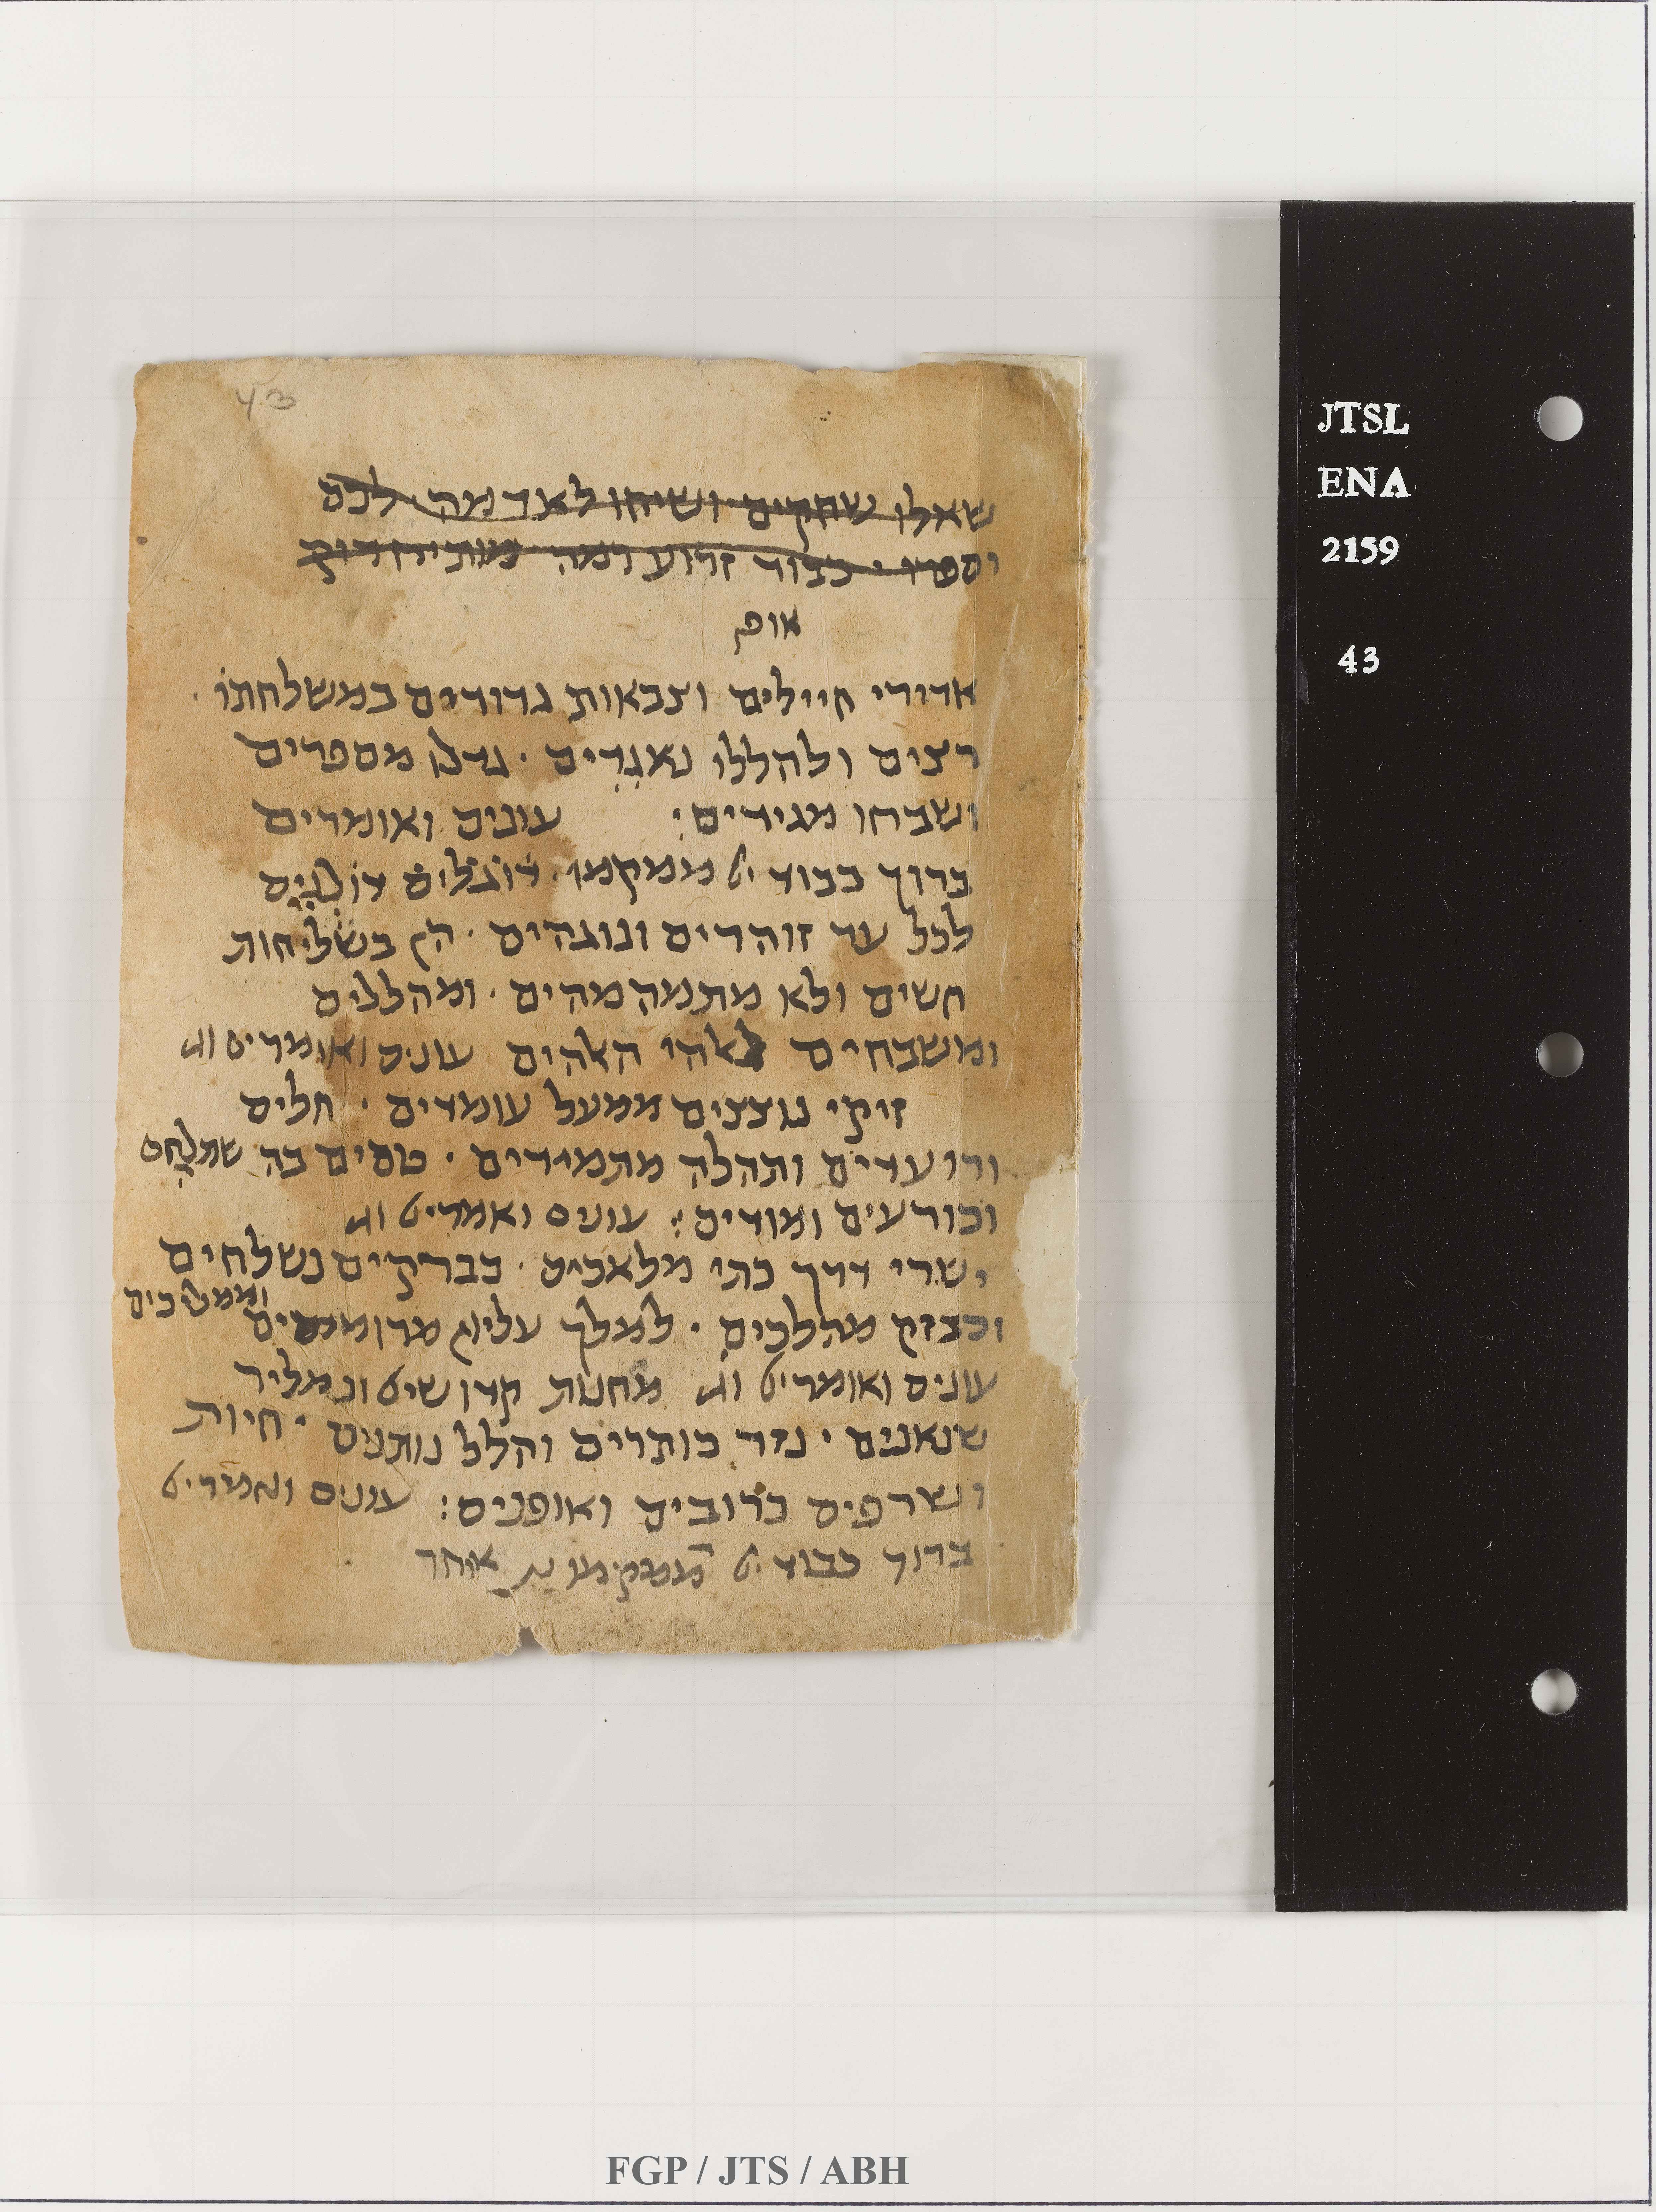 43
שאלו שחקים ושיחו לאדמה לכם
יספרו כבוד זרוע רמה
אופ
אדירי חיילים וצבאות גדודים במשלחתו
רצים ולהללו נאגרים · גדלו מספרים
ושבחו מגידים: עונים ואומרים
ברוך כבוד ממקמו דוגלים
לכל עד זוהרים ונוגהים · הם בשליחות
חשים ולא מתמהמהים · ומהללים
ומשבחים האהים עונים ואומרים וג
זיקי נוצצים ממעל עומדים · חלים
ורועדים ותהלה מתמידים · טסים בה
וכורעים ומודים: עונים וג
ישרי דרך כתי מלאכים · כברקים נשלחים
וממשיכים
וכבזק מהלכים · למלך עליון
עונים וג מחנות קדו
שנאנים · נזר כותרים והלל נותנים · חיות
ושרפים כרובים ואופנים: עונים
ברוך כבוד אחר
JTSL
ENA
2159
43
FGP / JTS / ABH